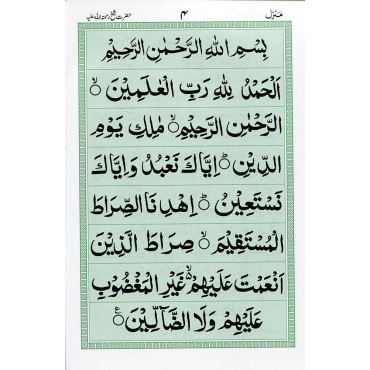 منزل ۴ حضرت شیخ رحمۃ اللہ علیہ
بِسْمِ اللهِ الرَّحْمٰنِ الرَّحِيْمِ
اَلْحَمْدُ لِلّٰهِ رَبِّ الْعٰلَمِيْنَ ۙ
الرَّحْمٰنِ الرَّحِيْمِ ۙ مٰلِكِ يَوْمِ
الدِّيْنِ ؕ اِيَّاكَ نَعْبُدُ وَاِيَّاكَ
نَسْتَعِيْنُ ؕ اِهْدِنَا الصِّرَاطَ
الْمُسْتَقِيْمَ ۙ صِرَاطَ الَّذِيْنَ
اَنْعَمْتَ عَلَيْهِمْ ۙ غَيْرِ الْمَغْضُوْبِ
عَلَيْهِمْ وَلَا الضَّآلِّيْنَ ۧ